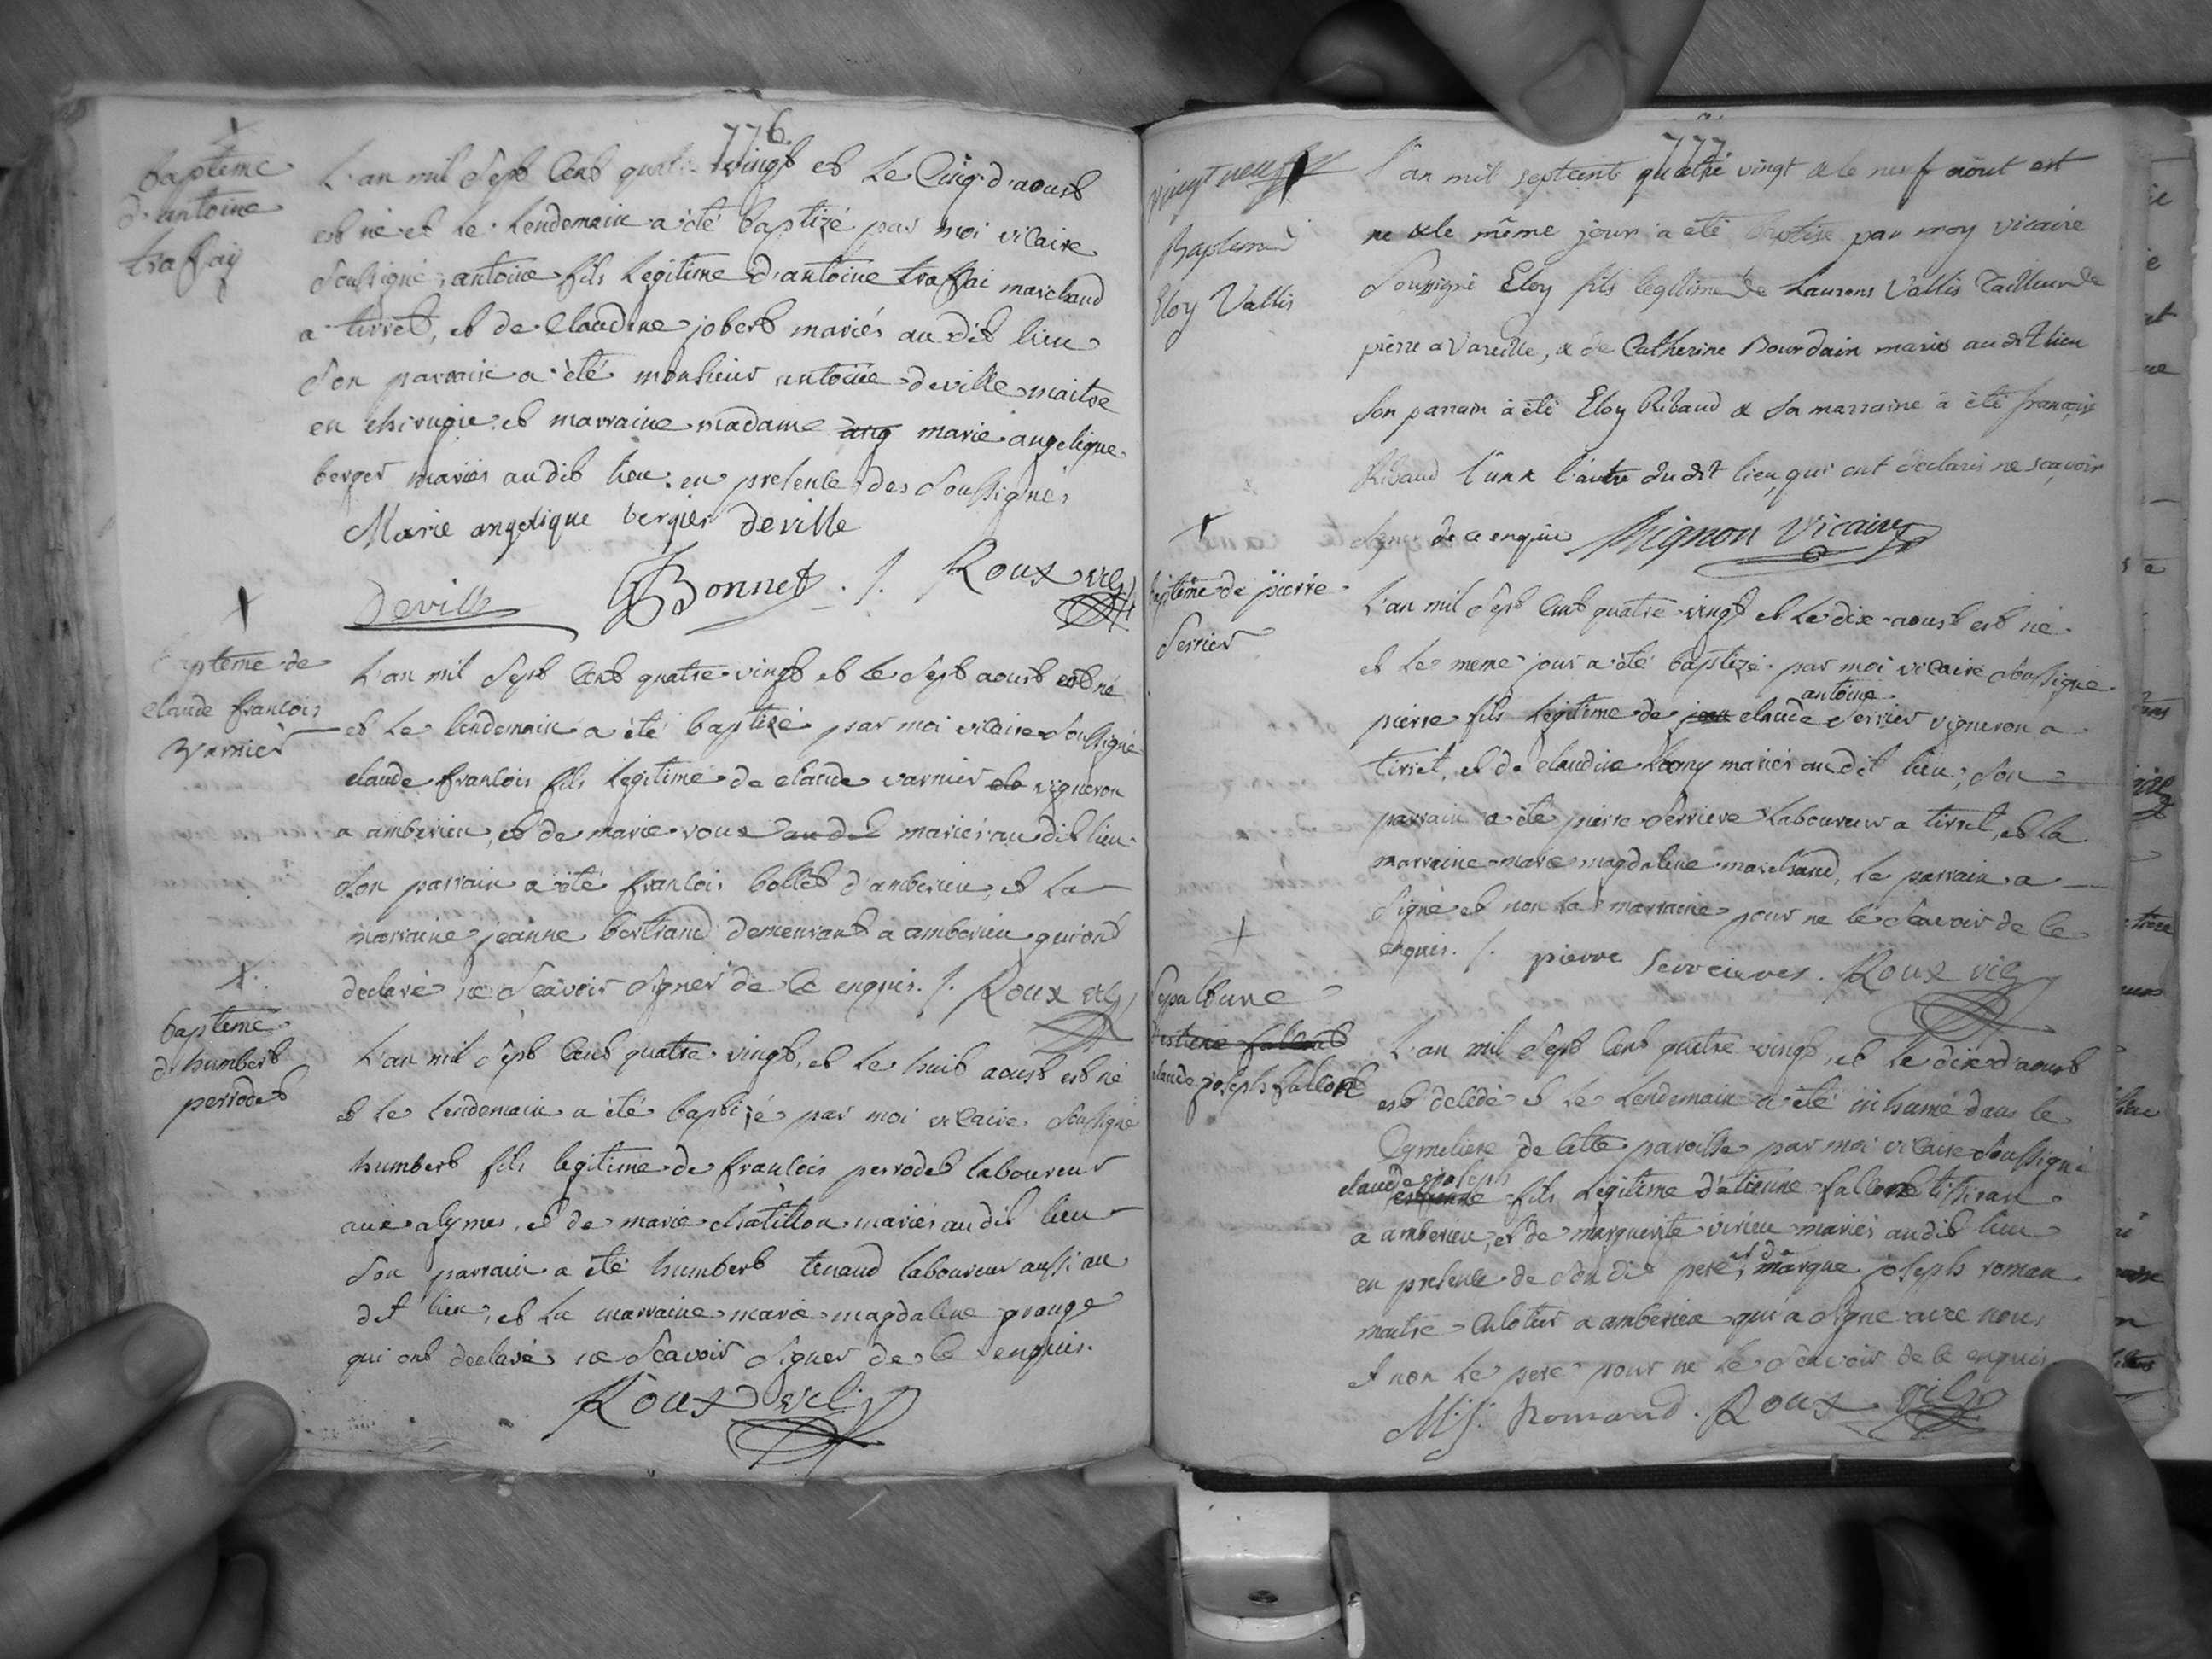 776.
baptême
d'antoine
traffay
L'an mil sept cent quatre vingt et le cinq d'aoust
est né et le lendemain a été baptizé par moi vicaire
soussigné, antoine fils legitime d'antoine traffai marchand
a tirret, et de claudine jobert mariés au dit lieu
son parrain a été monsieur antoine deville maitre
en chirugie et marraine madame ang marie angelique
berger mariés audit lieu en presence des soussignés
Marie angelique bergier deville
Deville GBonnet ./. Roux vic
baptême de
claude francois
varnier
L'an mil sept cent quatre vingt et le sept aoust est né
et le lendemain a été baptizé par moi vicaire soussigné
claude francois fils legitime de claude varnier vigneron
a amberieu, et de marie roux au dit mariés au dit lieu
son parrain a été francois bollet d'amberieu, et la
marraine jeanne bertrand demeurant a amberieu qui ont
declaré ne sçavoir signer de ce enquis ./. Roux vic
baptême
d'humbert
perrodet
L'an mil sept cent quatre vingt, et le huit aoust est né
et le lendemain a été baptizé par moi vicaire soussigné
humbert fils legitime de francois perrodet laboureur
aux alymes, et de marie chatillon mariés au dit lieu
son parrain a été humbert tenand laboureur aussi au
dit lieu, et la marraine marie magdaleine grange
qui ont declaré ne sçavoir signer de ce enquis.
Roux vic
777.
vingt neuf
Baptême
Eloy Vallis
L'an mil septcent quatre vingt & le neuf août est
né & le même jour a été baptisé par moy vicaire
soussigné Eloy fils legitime de Laurens Vallis Tailleur de
pierre a Vareille, & de Catherine Bourdain mariés au dit lieu
son parrain à été Eloy Ribaud & sa marraine à été françoise
Ribaud l'un & l'autre du dit lieu, qui ont déclarés ne sçavoir
signer de ce enquis Mignon Vicaire
baptême de pierre
serrier
L'an mil sept cent quatre vingt et le dix aoust est né
et le meme jour a été baptizé par moi vicaire soussigné
antoine
pierre fils legitime de jean claude serrier vigneron a
tirret, et de claudine Leony mariés audit lieu, son
parrain a été pierre serriere laboureur a tirret, et la
marraine marie magdaleine marchand, le parrain a
signé et non la marraine pour ne le sçavoir de ce
enquis ./. pierre serrieres. Roux vic
sepulture
d'estiene fallout
claude joseph fallont
L'an mil sept cent quatre vingt, et le dix d'aoust
est décédé et le lendemain a été inhumé dans le
cymetiere de cette paroisse par moi vicaire soussigné
claude joseph
estienne fils legitime d'etienne fallont tisseran
a amberieu, et de marguerite virieu mariés audit lieu
et de
en presence de son dit pere, marque joseph roman
maitre culotier a amberieu qui a signé avec nous
et non le pere pour ne le sçavoir de ce enquis
M.j. Romand. Roux vic